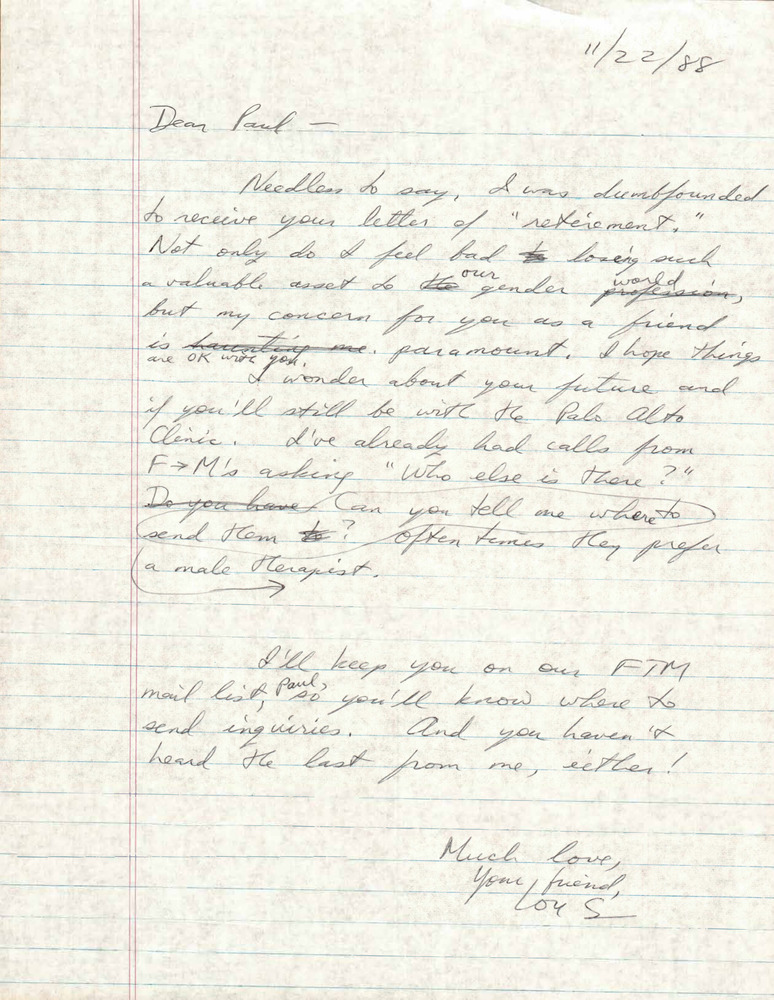 11/22/88
Dear Paul —
Needless to say, I was dumbfounded
to receive your letter of "retirement."
Not only do I feel bad to losing such
a valuable asset to the our gender profession, world
but my concern for you as a friend
is haunting me. paramount. I hope things
are OK with you.
I wonder about your future and
if you'll still be with the Palo Alto
Clinic. I've already had calls from
F→M's asking "Who else is there?"
Do you have Can you tell me where to
send them to? Often times they prefer
a male therapist.
I'll keep you on our FTM
mail list, Paul, so you'll know where to
send inquiries. And you haven't
heard the last from me, either!
Much love,
Your friend,
Lou S